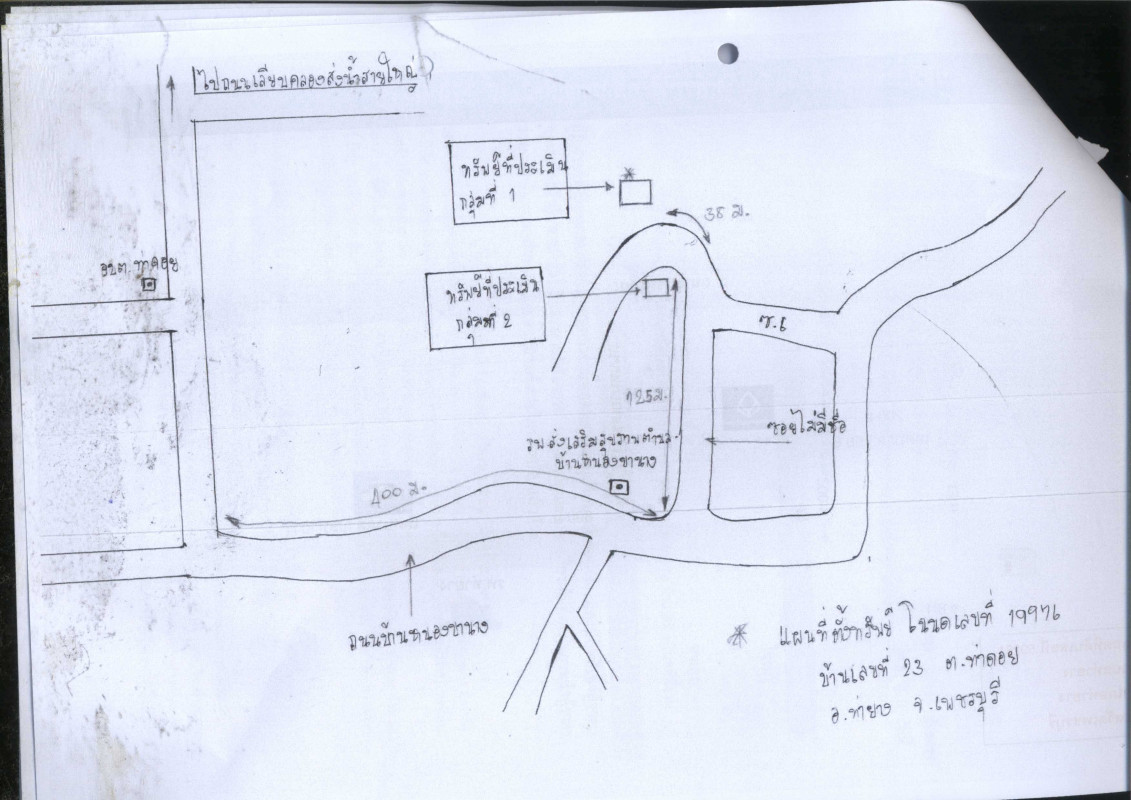 ไปถนนเลียบคลองส่งน้ำสายใหญ่
ทรัพย์ที่ประเมิน
กลุ่มที่ 1
38 ม.
อบต.ท่าคอย
ทรัพย์ที่ประเมิน
กลุ่มที่ 2
ซ.6
125ม.
ซอยไม่มีชื่อ
รพ.ส่งเสริมสุขภาพตำบล
บ้านหนองขานาง
400 ม.
ถนนบ้านหนองขานาง
แผนที่ตั้งทรัพย์ โฉนดเลขที่ 19976
บ้านเลขที่ 23 ต.ท่าคอย
อ.ท่ายาง จ.เพชรบุรี